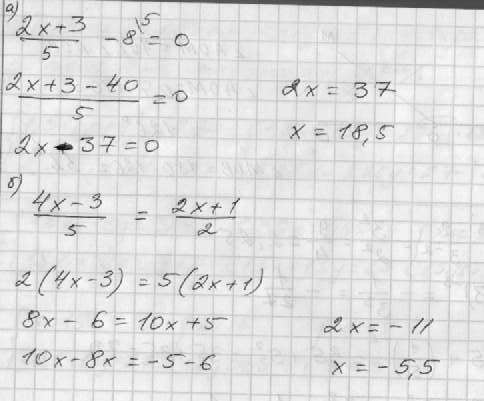 а)
(2x+3)/5 - 8\5 = 0
(2x+3-40)/5 = 0
2x - 37 = 0
2x = 37
x = 18,5
б)
(4x-3)/5 = (2x+1)/2
2(4x-3) = 5(2x+1)
8x - 6 = 10x+5
10x-8x = -5-6
2x = -11
x = -5,5